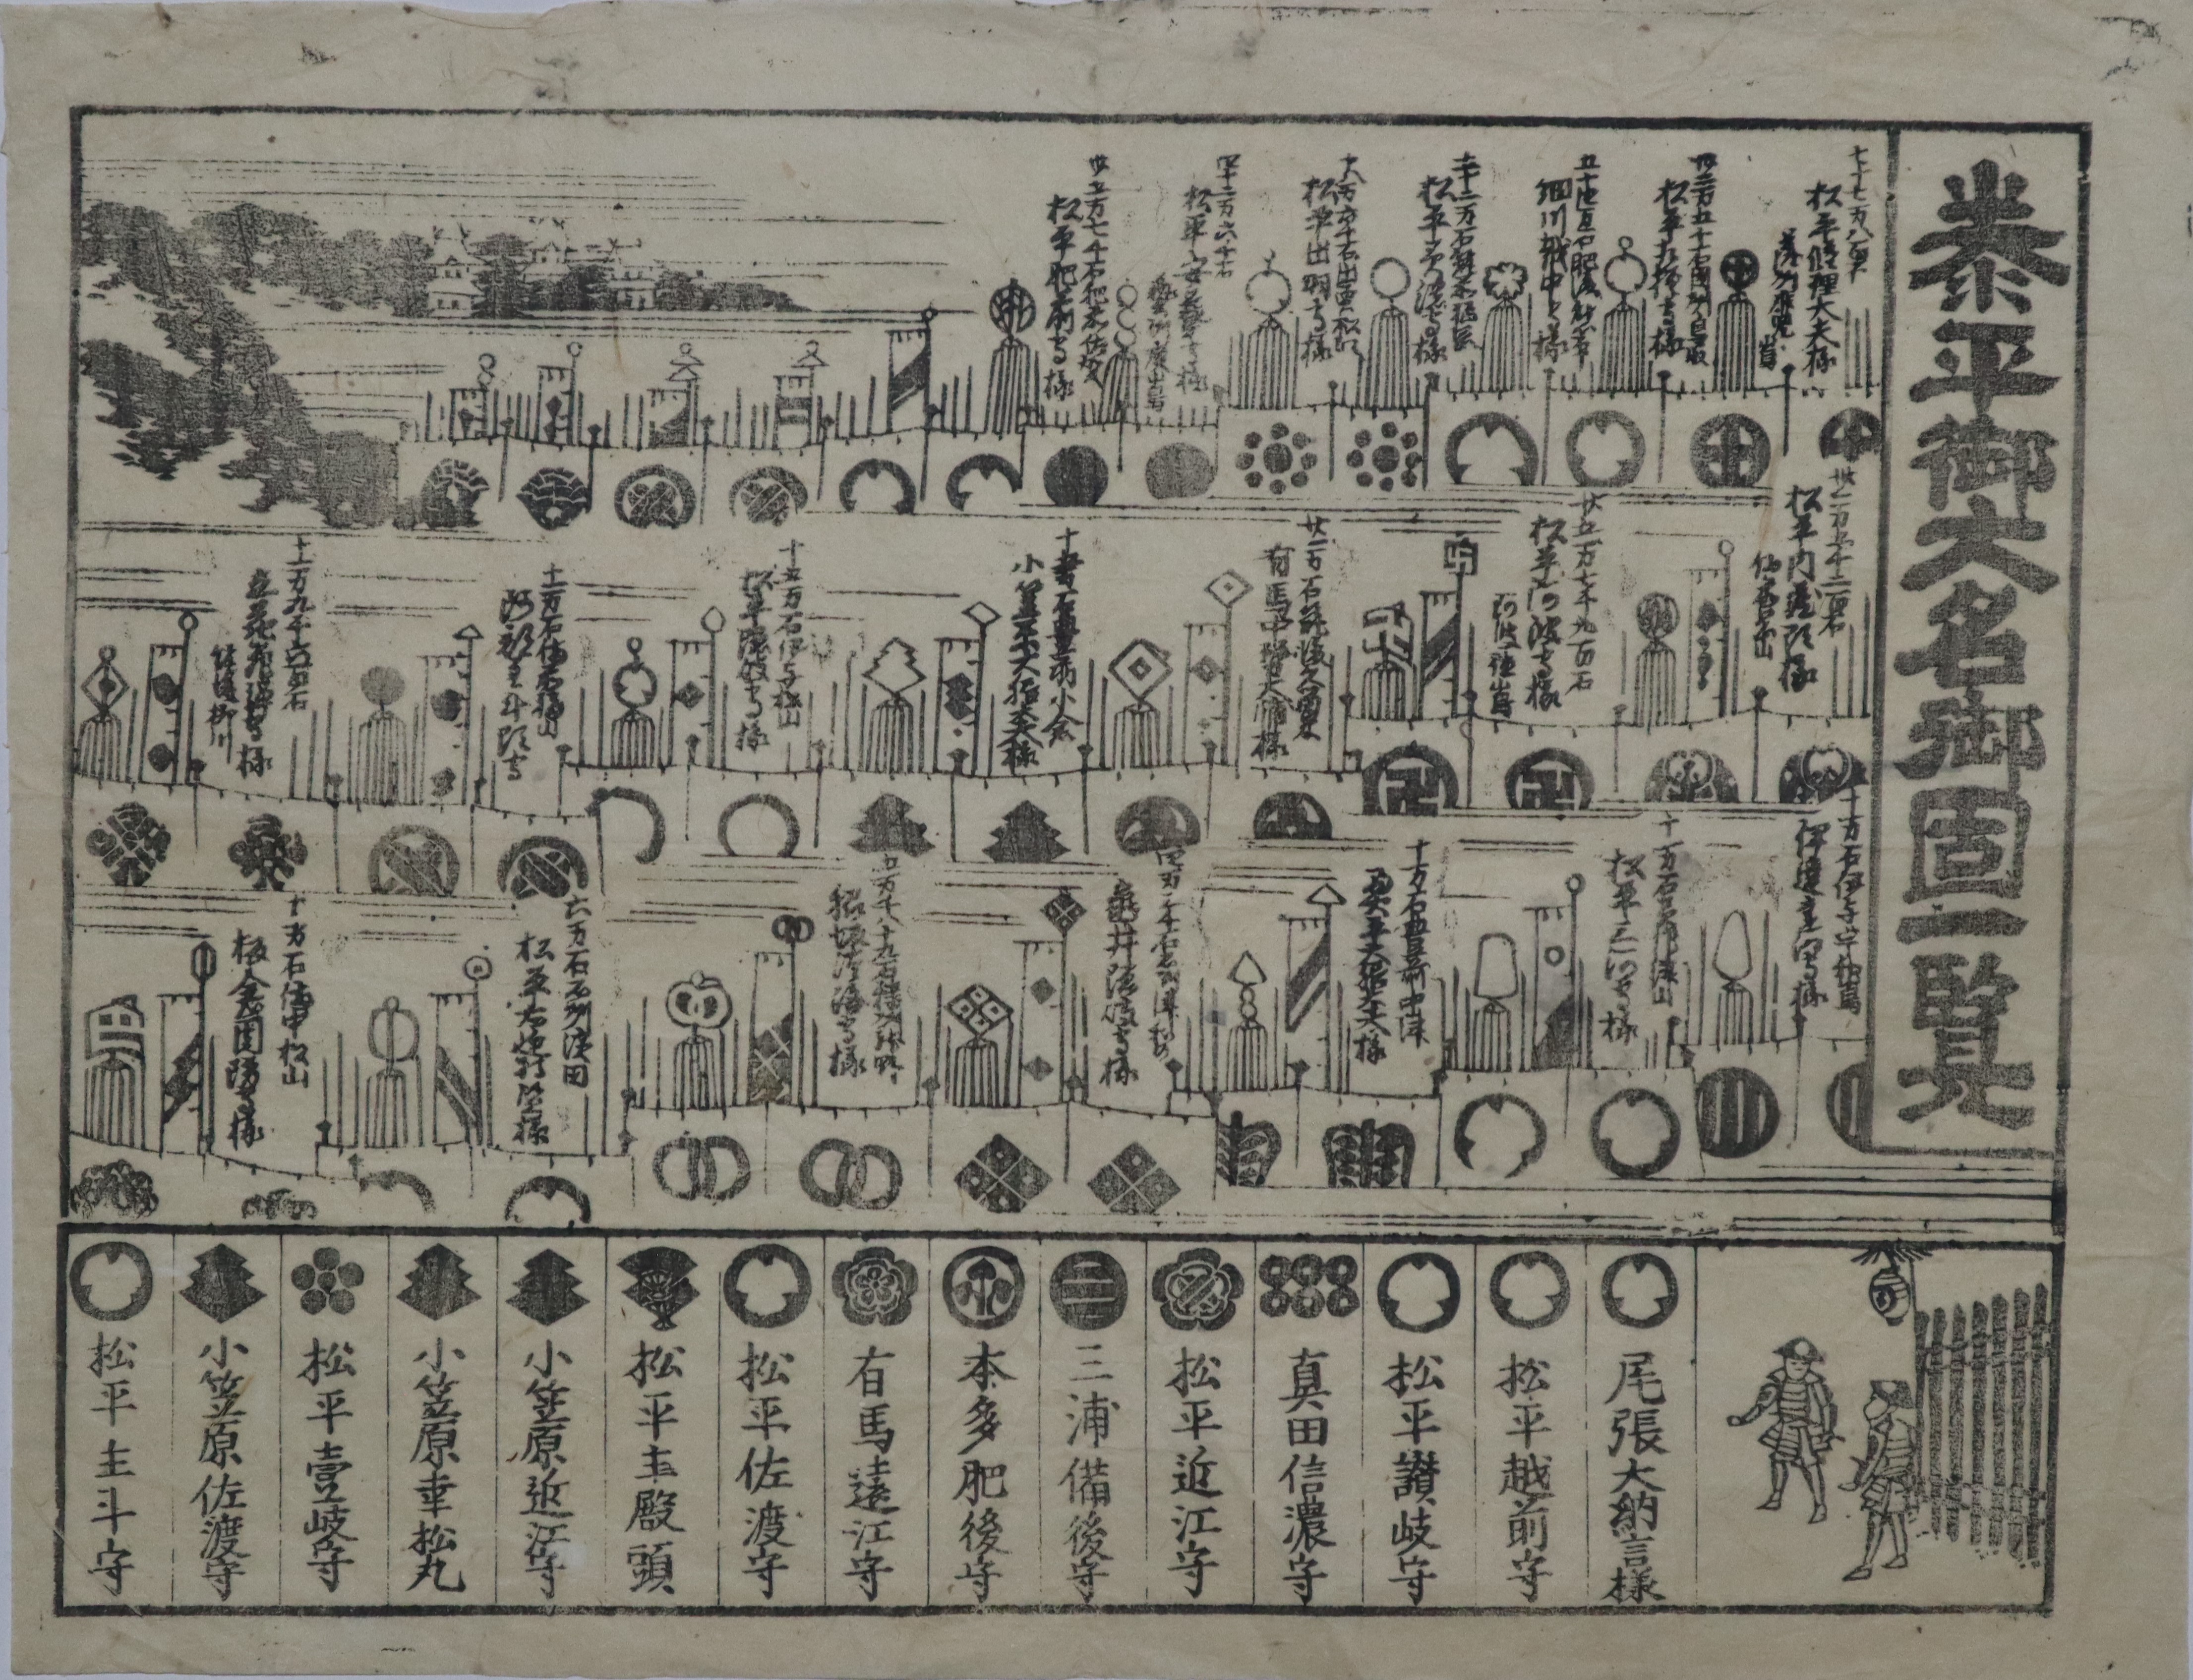 泰平御大名御固一覧
七十七万八百石
松平修理大夫様
薩州鹿児島
松平相模守様
細川越中守様
松平美濃守様
松平出羽守様
四十二万六千石
松平安芸守様
芸州広島
卅五万七千石肥前佐賀
松平肥前守様
松平内蔵頭様
備前岡山
廿五万七千九百石
松平阿波守様
阿波徳島
廿一万石筑後久留米
有馬中務大輔様
小笠原大膳大夫様
十五万石伊与松山
松平隠岐守様
十一万石備後福山
阿部主斗頭守
十一万九千六百石
立花飛騨守様
筑後柳川
十万石伊与宇和島
伊達遠江守様
十万石作州津山
松平三河守様
十万石豊前中津
奥平大膳大夫様
亀井隠岐守様
六万石石州濱田
松平右近将監様
十万石備中松山
板倉周防守様
尾張大納言様
松平越前守
松平讃岐守
真田信濃守
松平近江守
三浦備後守
本多肥後守
有馬遠江守
松平佐渡守
松平主殿頭
小笠原近江守
小笠原幸松丸
松平壹岐守
小笠原佐渡守
松平主斗守